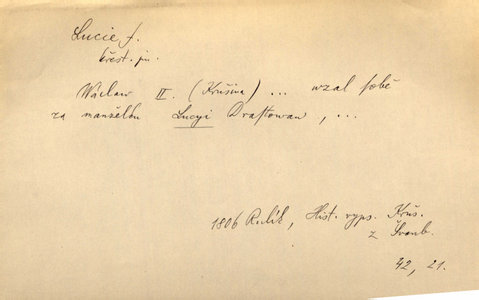 Lucie f.
křest. jm.
Wáclaw II. (Krušina) ... wzal sobě
za manželku Lucyi Drastowau, ...
1806 Rulík, Hist. vyps. Kruš.
z Švamb.
42, 21.